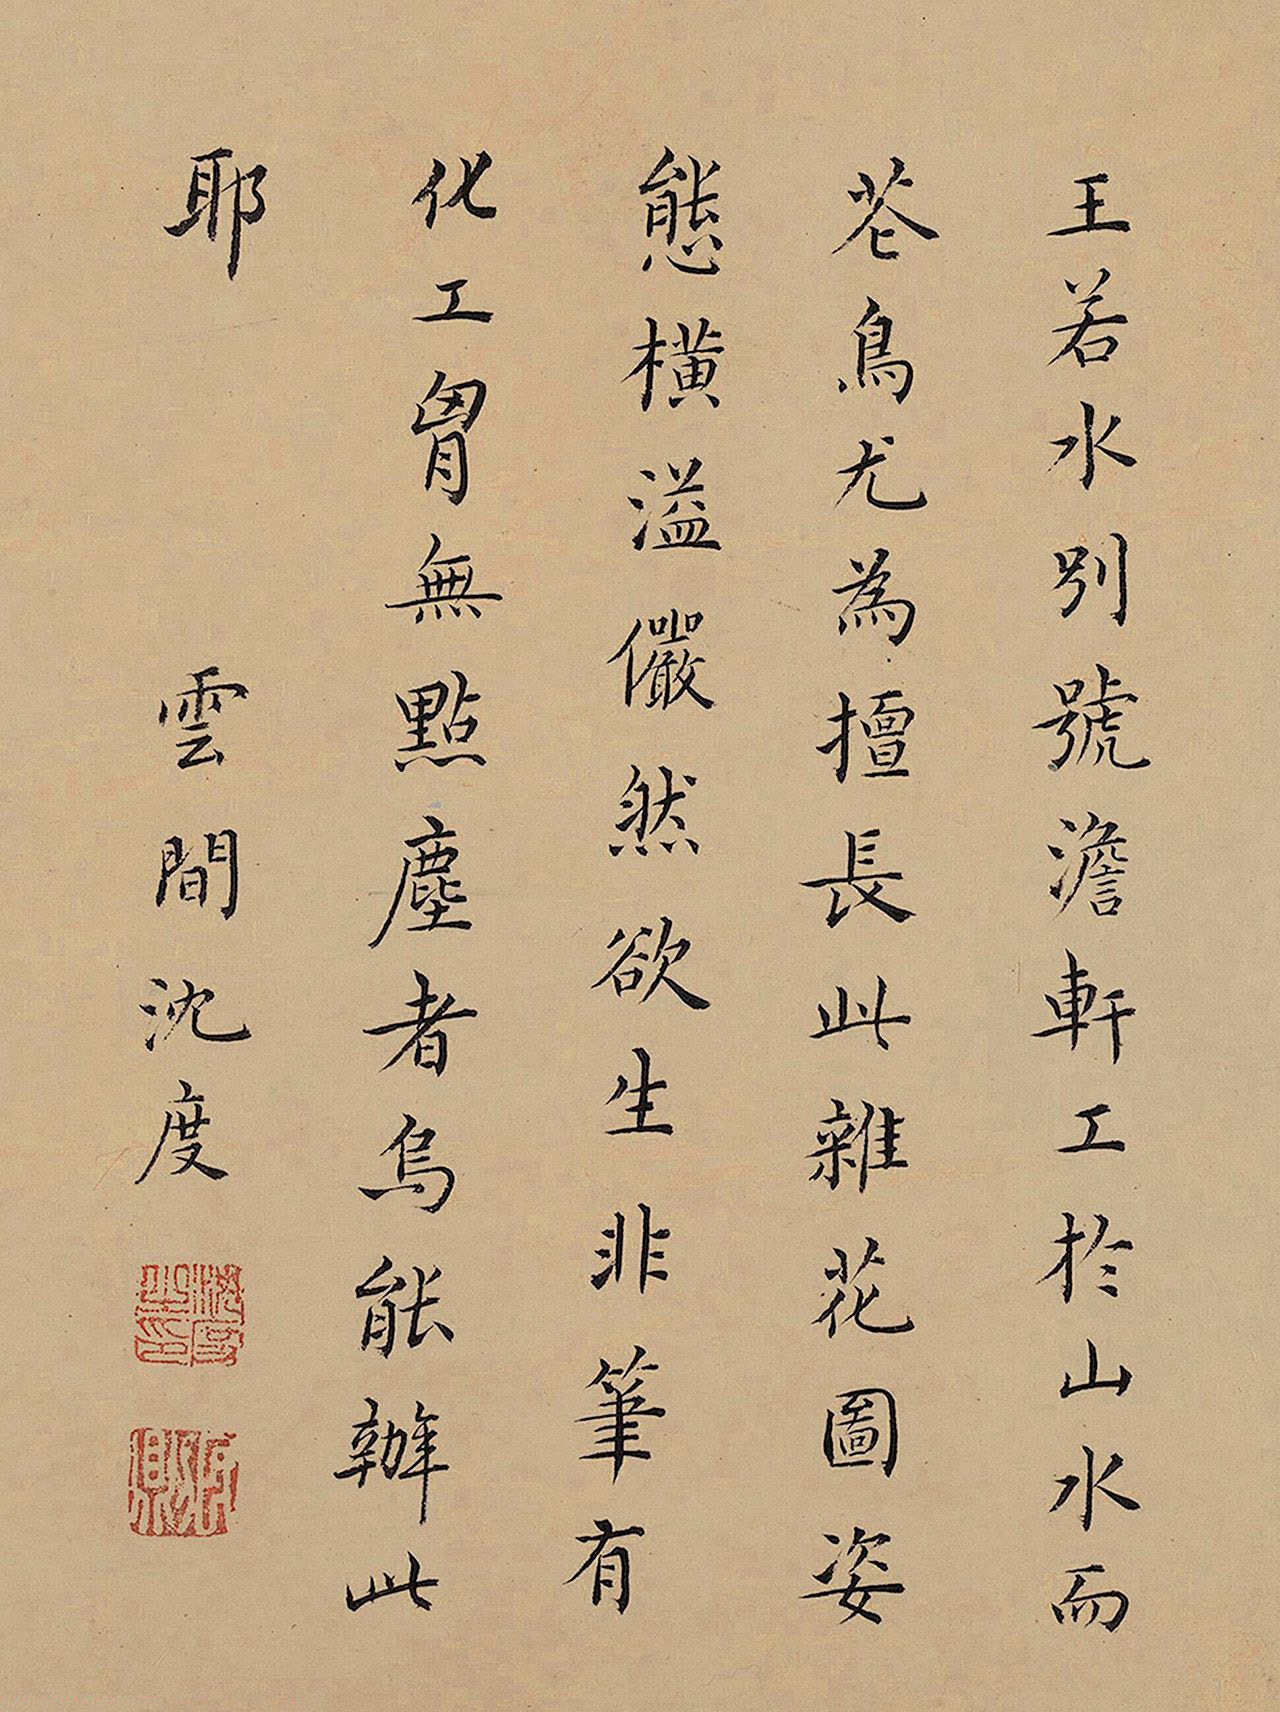 王若水別號澹軒工於山水而
花鳥尤為擅長此雜花圖姿
態橫溢儼然欲生非筆有
化工胷無點塵者烏能辦此
耶
雲間沈度
沈度之印